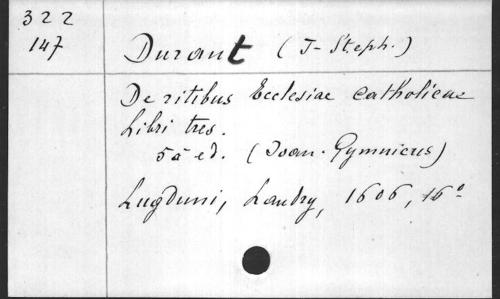 322
147
Durant (J- Steph.)
De ritibus Ecclesiae Catholicae
Libri tres.
5a ed. (Joan. Gymnicus)
Lugduni, Landry, 1606, 16º